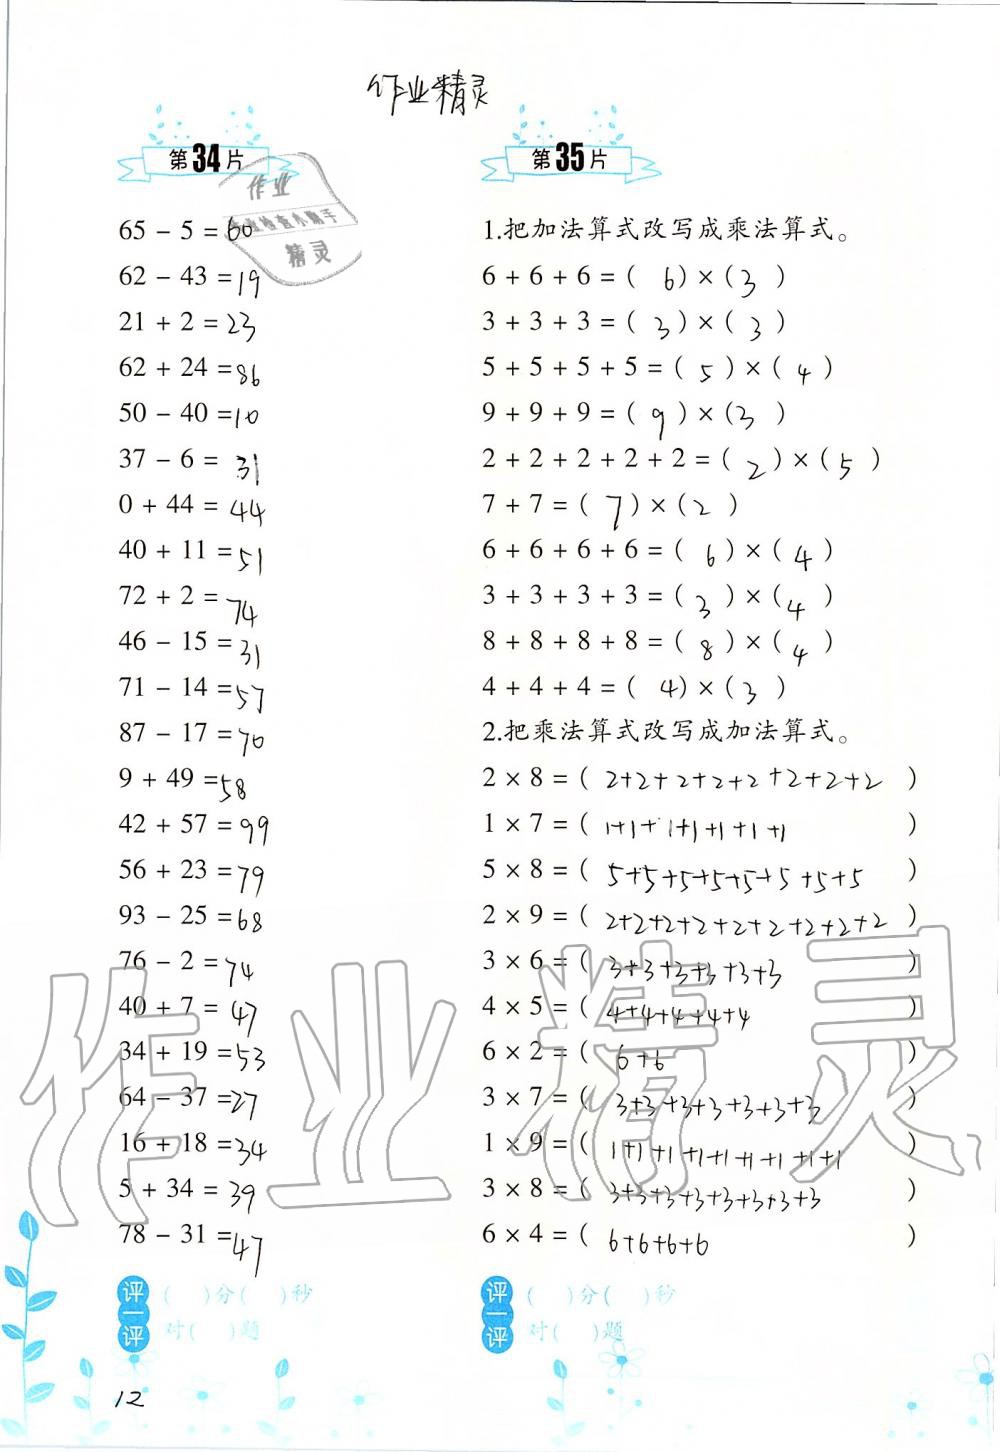 作业精灵
第34片
作业
作业检查小助手
精灵
65 - 5 = 60
62 - 43 = 19
21 + 2 = 23
62 + 24 = 86
50 - 40 = 10
37 - 6 = 31
0 + 44 = 44
40 + 11 = 51
72 + 2 = 74
46 - 15 = 31
71 - 14 = 57
87 - 17 = 70
9 + 49 = 58
42 + 57 = 99
56 + 23 = 79
93 - 25 = 68
76 - 2 = 74
40 + 7 = 47
34 + 19 = 53
64 - 37 = 27
16 + 18 = 34
5 + 34 = 39
78 - 31 = 47
评一评
( )分( )秒
对( )题
第35片
1.把加法算式改写成乘法算式。
6 + 6 + 6 = ( 6 ) × ( 3 )
3 + 3 + 3 = ( 3 ) × ( 3 )
5 + 5 + 5 + 5 = ( 5 ) × ( 4 )
9 + 9 + 9 = ( 9 ) × ( 3 )
2 + 2 + 2 + 2 + 2 = ( 2 ) × ( 5 )
7 + 7 = ( 7 ) × ( 2 )
6 + 6 + 6 + 6 = ( 6 ) × ( 4 )
3 + 3 + 3 + 3 = ( 3 ) × ( 4 )
8 + 8 + 8 + 8 = ( 8 ) × ( 4 )
4 + 4 + 4 = ( 4 ) × ( 3 )
2.把乘法算式改写成加法算式。
2 × 8 = ( 2+2+2+2+2+2+2+2 )
1 × 7 = ( 1+1+1+1+1+1+1 )
5 × 8 = ( 5+5+5+5+5+5+5+5 )
2 × 9 = ( 2+2+2+2+2+2+2+2+2 )
3 × 6 = ( 3+3+3+3+3+3 )
4 × 5 = ( 4+4+4+4+4 )
6 × 2 = ( 6+6 )
3 × 7 = ( 3+3+3+3+3+3+3 )
1 × 9 = ( 1+1+1+1+1+1+1+1+1 )
3 × 8 = ( 3+3+3+3+3+3+3+3 )
6 × 4 = ( 6+6+6+6 )
评一评
( )分( )秒
对( )题
作业精灵
12